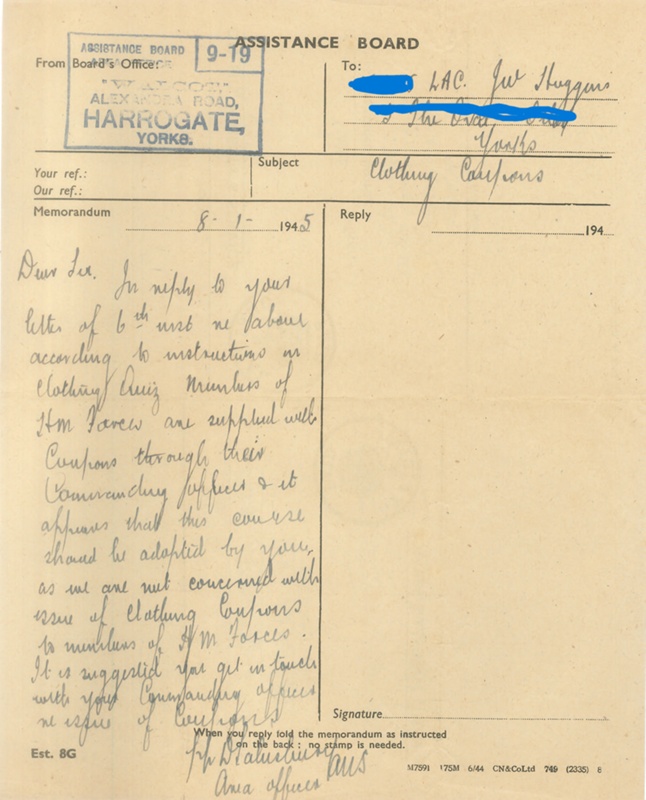 ASSISTANCE BOARD
From Board's Office:
ASSISTANCE BOARD
9-19
ALEXANDRA ROAD,
HARROGATE,
YORKS.
To:
LAC. JW Huggins
Yorks
Your ref.:
Our ref.:
Subject
Clothing Coupons
Memorandum
8-1-1945
Reply
194
Dear Sir. In reply to your
letter of 6th inst re above
according to instructions in
Clothing Quiz Members of
HM Forces are supplied with
Coupons through their
Commanding Officer & it
appears that this course
should be adopted by you,
as we are not concerned with
issue of Clothing Coupons
to members of HM Forces.
It is suggested you get in touch
with your Commanding Officer
re issue of Coupons
Signature
When you reply fold the memorandum as instructed
on the back: no stamp is needed.
Est. 8G
Area officer
M7591 175M 6/44 CN&CoLtd 749 (2335) 8